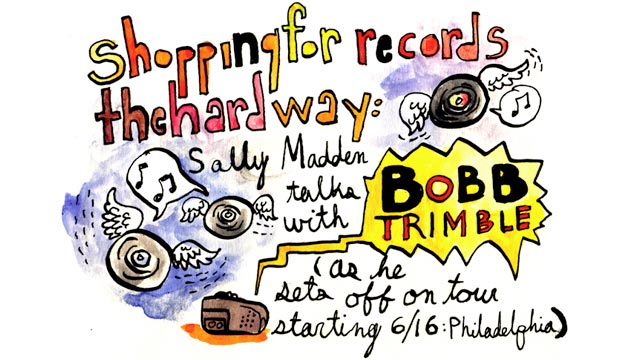 shopping for records
the hard way:
Sally Madden
talks
with
BOBB
TRIMBLE
(as he
sets off on tour
starting 6/16: Philadelphia)